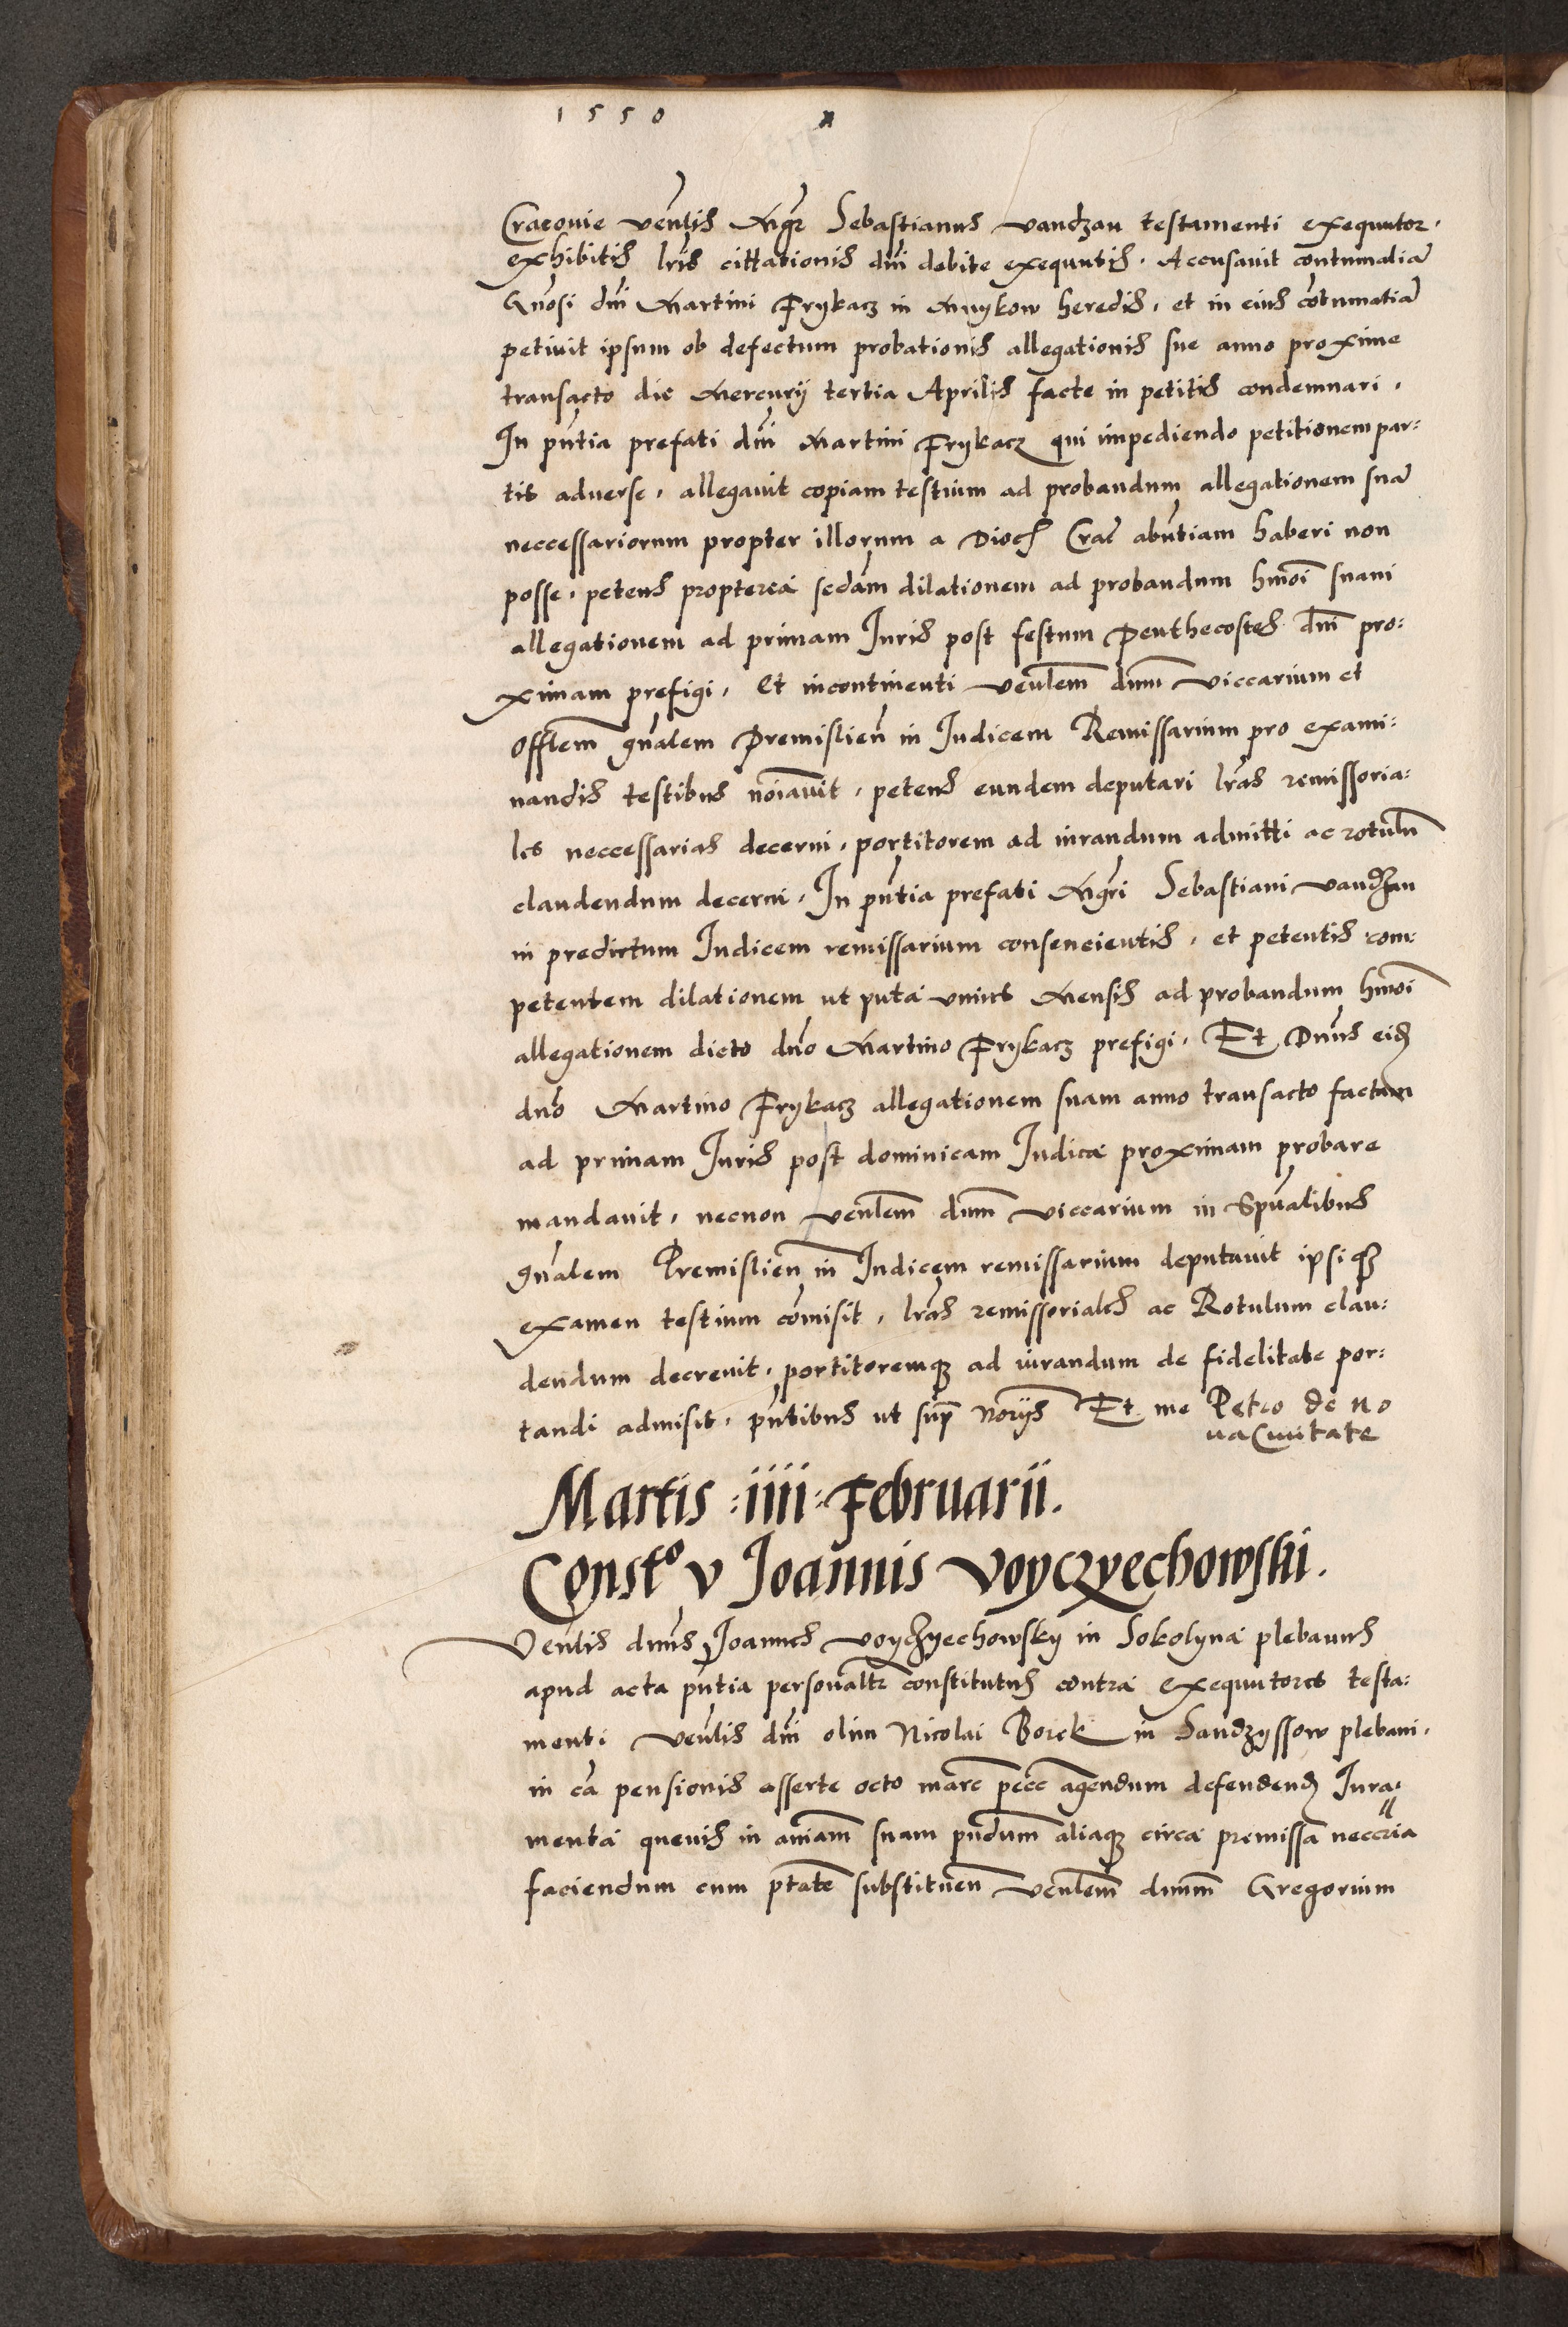 1550
Cracovie ven̄lis Mgr̄ Sebastianus vandzan testamenti exequutor.
exhibitis lr̄is cittationis dn̄i debite exequutis. Accusavit contumatiā
Gn̄osi dn̄i Martini Frykacz in Mnykow heredis, et in eius cōtumatiā
petivit ipsum ob defectum probationis allegationis sue anno proxime
transacto die Mercurij tertia Aprilis facte in petitis condemnari.
In pn̄tia prefati dn̄i Martini Frykacz qui impediendo petitionem par:
tis adverse, allegavit copiam testium ad probandum allegationem suā
neccessariorum propter illorum a Dioc̄ Crac̄ abn̄tiam haberi non
posse, petens propterea secdam̄ dilationem ad probandum hmōi suam
allegationem ad primam Iuris post festum Penthecostes dn̄i pro:
ximam prefigi, et incontinenti ven̄lem̄ dnm̄ viccarium et
Offlem̄ gn̄alem Premislien̄ in Iudicem Remissarium pro exami:
nandis testibus nōiavit, petens eundem deputari lr̄as remissoria:
les neccessarias decerni, portitorem ad iurandum admitti ac rotulū
claudendum decerni. In pn̄tia prefati Mgr̄i Sebastiani vandzan
in predictum Iudicem remissarium consencientis, et petentis com:
petentem dilationem ut puta unius Mensis ad probandum hmōi
allegationem dicto dn̄o Martino Frykacz prefigi. Et Dn̄us eid
dn̄o Martino Frykacz allegationem suam anno transacto factam
ad primam Iuris post dominicam Iudica proximam probare
mandavit, necnon ven̄lem̄ dnm̄ viccarium in Spūalibus
gn̄alem Premislien̄ in Iudicem remissarium deputavit ipsiqз
examen testium cōmisit, lr̄as remissoriales ac Rotulum clau:
dendum decrevit, portitoremqз ad iurandum de fidelitate por:
tandi admisit, pn̄tibus ut sup̄ Norijs Et me Petro de no
va Civitate
Martis :iiii: Februarii.
Constº v Joannis Voyczyechowski.
Ven̄lis dn̄us Joannes voyczyechowsky in Sokolyna plebanus
apud acta pn̄tia personaltr̄ constitutus contra exequutores testa:
menti ven̄lis dn̄i olim Nicolai Borek in Sandzyssow plebani.
in cā pensionis asserte octo marc̄ pecc̄ agendum defendend Iura:
menta quevis in aniam̄ suam pn̄dum aliaqз circa premissa neccria
faciendum cum ptātē substituen̄ ven̄lem̄ dnm̄ Gregorium